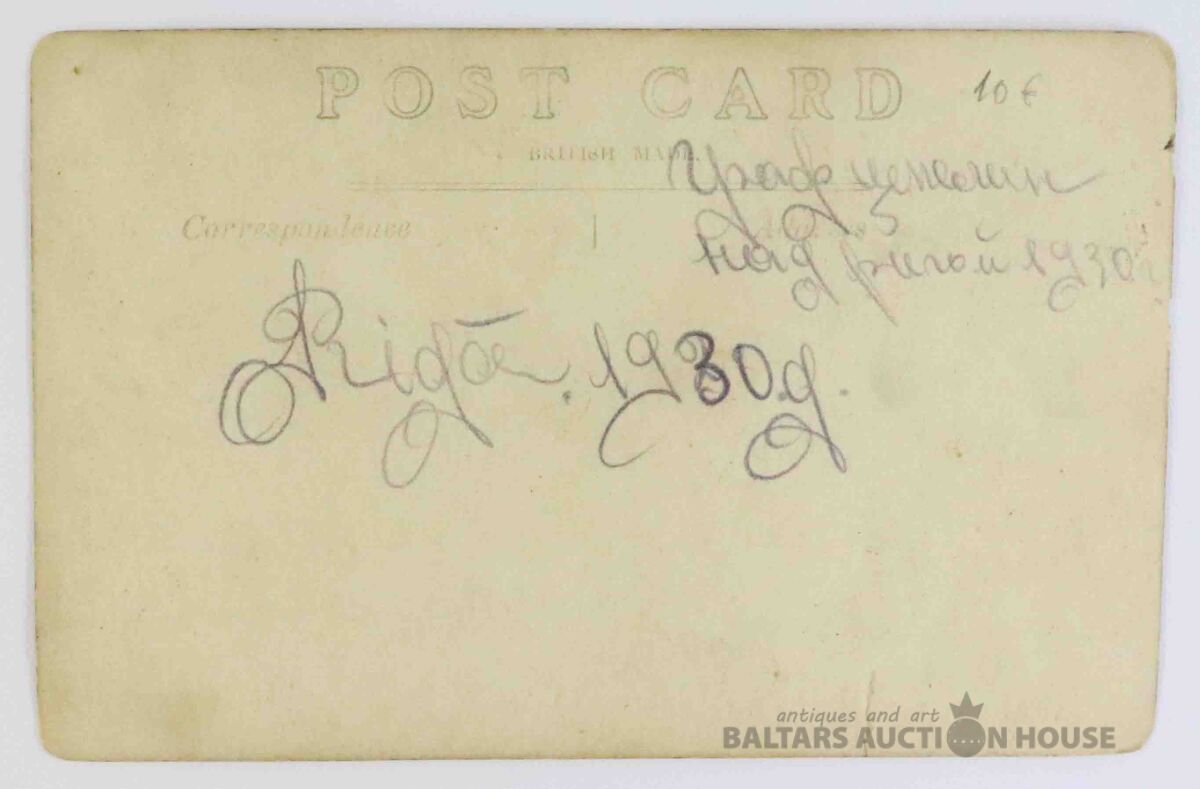 POST CARD
10 €
BRITISH MADE
Граф цепелин
над ригой 1930 г.
Correspondence
Rīgā. 1930.g.
antiques and art
BALTARS AUCTION HOUSE